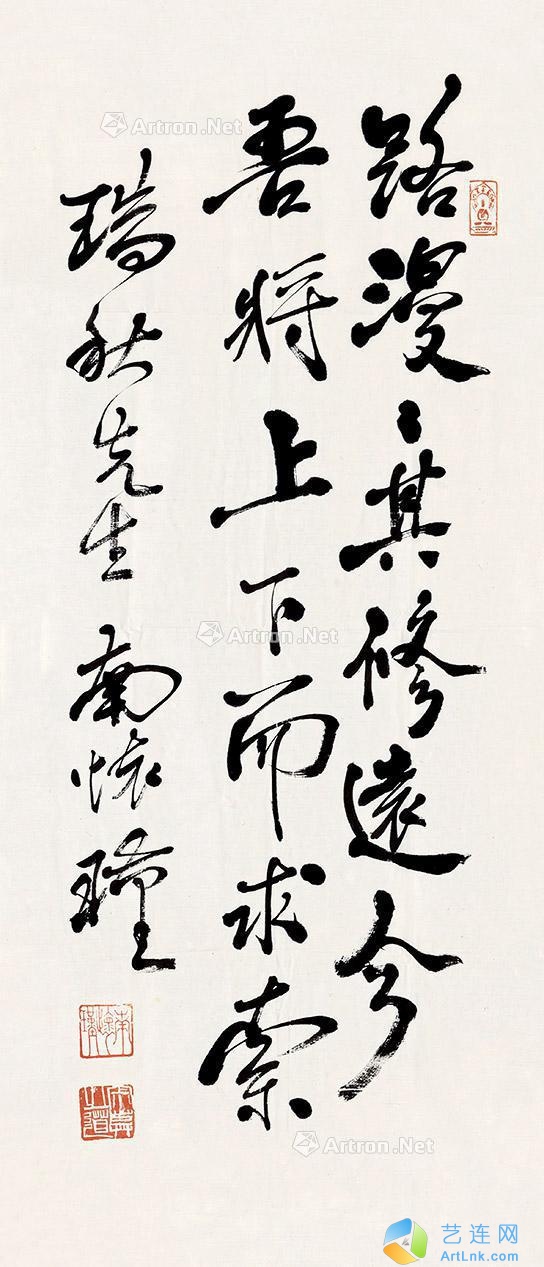 路漫〻其修遠兮
吾將上下而求索
瑞秋先生 南懷瑾
Artron.Net
Artron.Net
Artron.Net
艺连网
ArtLnk.com